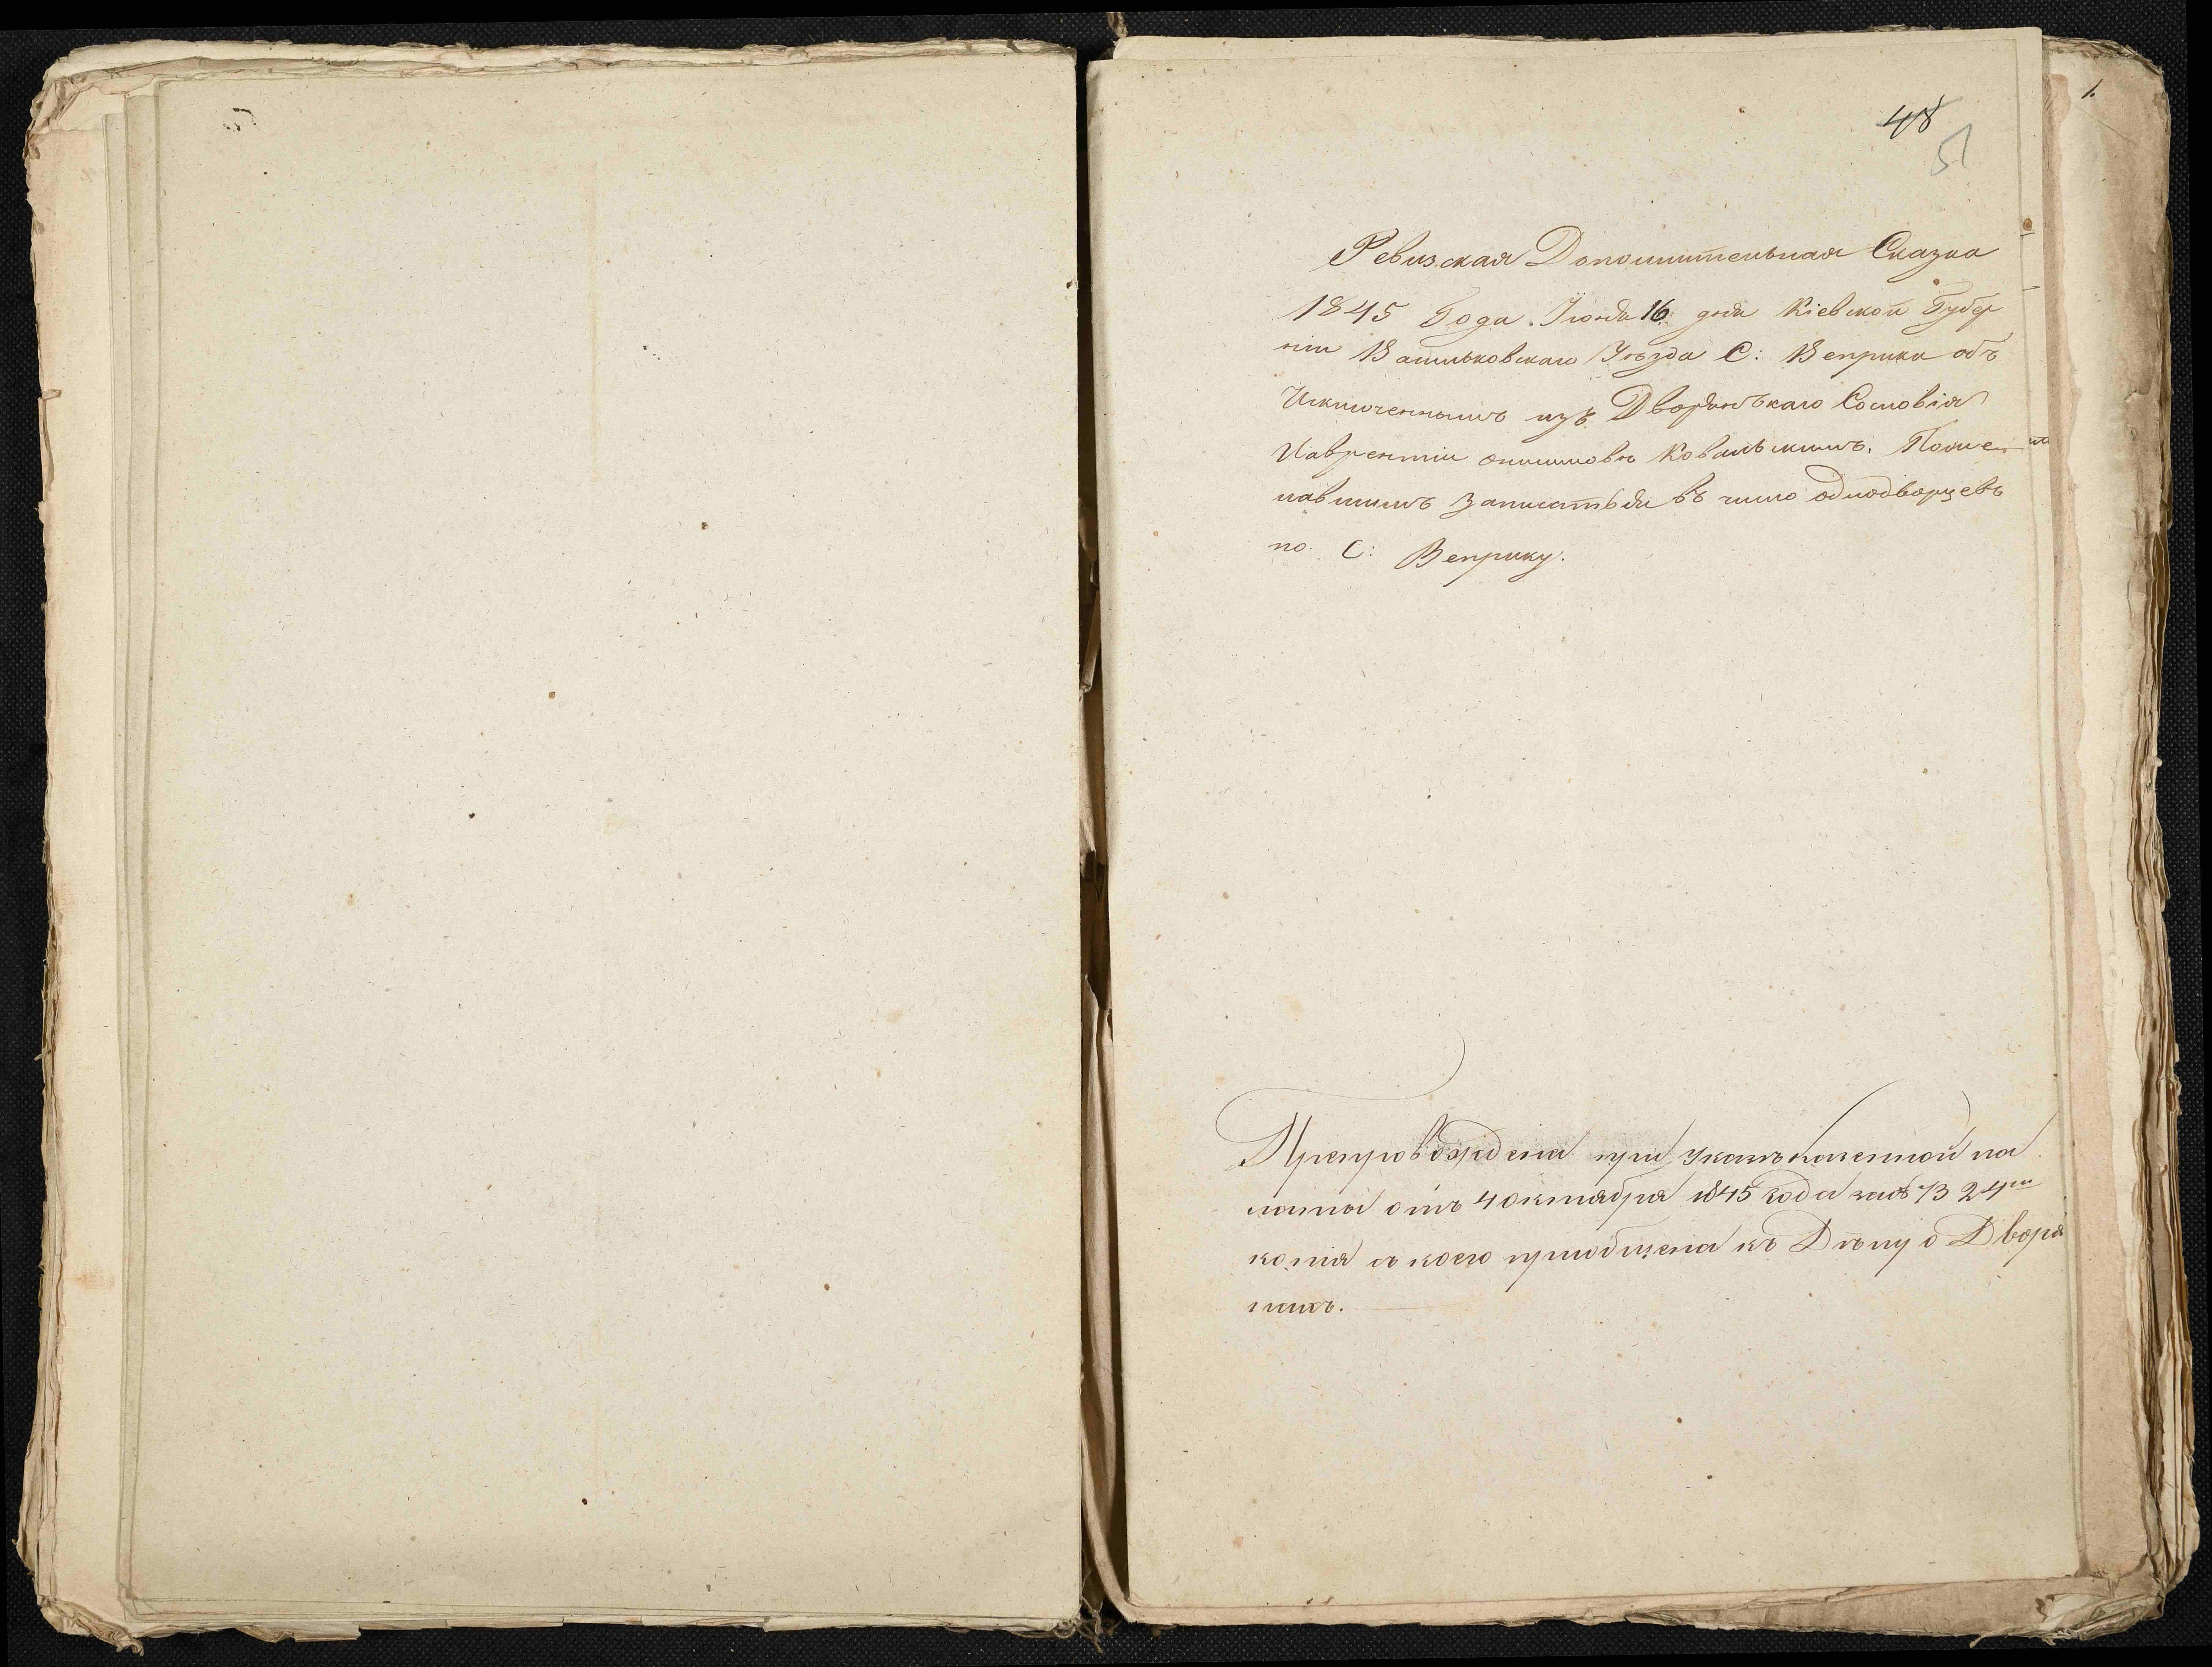 1.
48
51
Ревизская Дополнительная Сказка
1845 Года Июня 16 дня Кіевской Губер
ніи Васильковскаго Уѣзда С: Веприка объ
Исключенномъ изъ Дворянскаго Сословія
Лаврентіи Ковальскимъ. Поже
лавшимъ Записаться въ число однодворцевъ
по С: Веприку.
Препровождена при указѣ казенной па
латы отъ 4 октября 1845 года за № 7324
копія съ коего пріобщена къ Дѣлу о Дворя
нахъ.